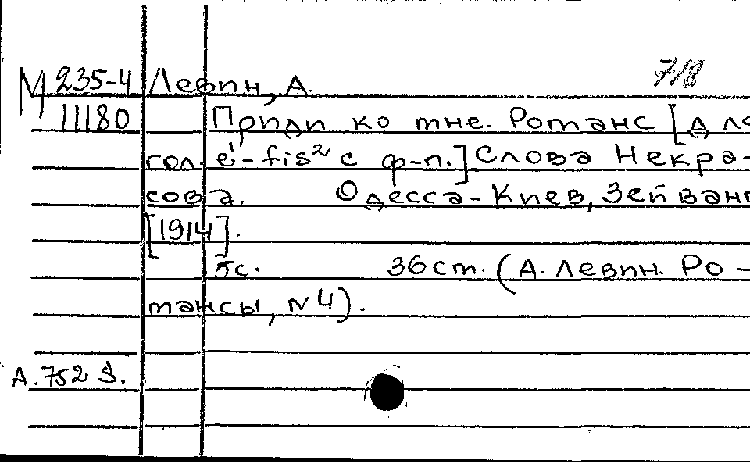 М 235-4 Левин, А. 7/8
11180 Приди ко мне. Романс [для
гол. e¹-fis² с ф-п.] Слова Некра-
сова. Одесса-Киев, Зейванг
[1914].
5с. 36 ст. (А. Левин. Ро-
мансы, №4).
А. 752 S.